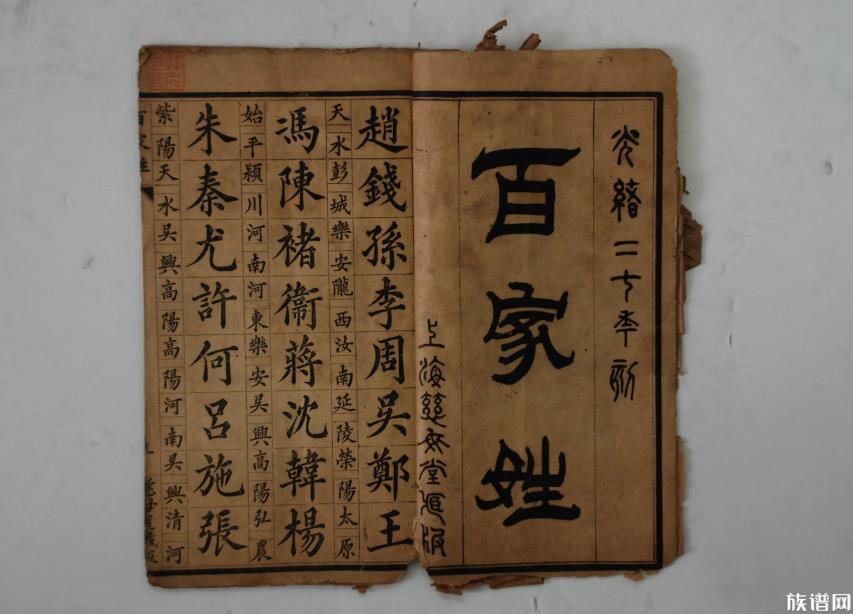 光緒二十年刻
百家姓
上海慈母堂藏版
趙錢孫李周吳鄭王
天水彭城樂安隴西汝南延陵榮陽太原
馮陳褚衞蔣沈韓楊
始平潁川河南河東樂安吳興高陽弘農
朱秦尤許何呂施張
紫陽天水吳興高陽高陽河南吳興清河
百家姓
一
慈母堂藏版
族谱网